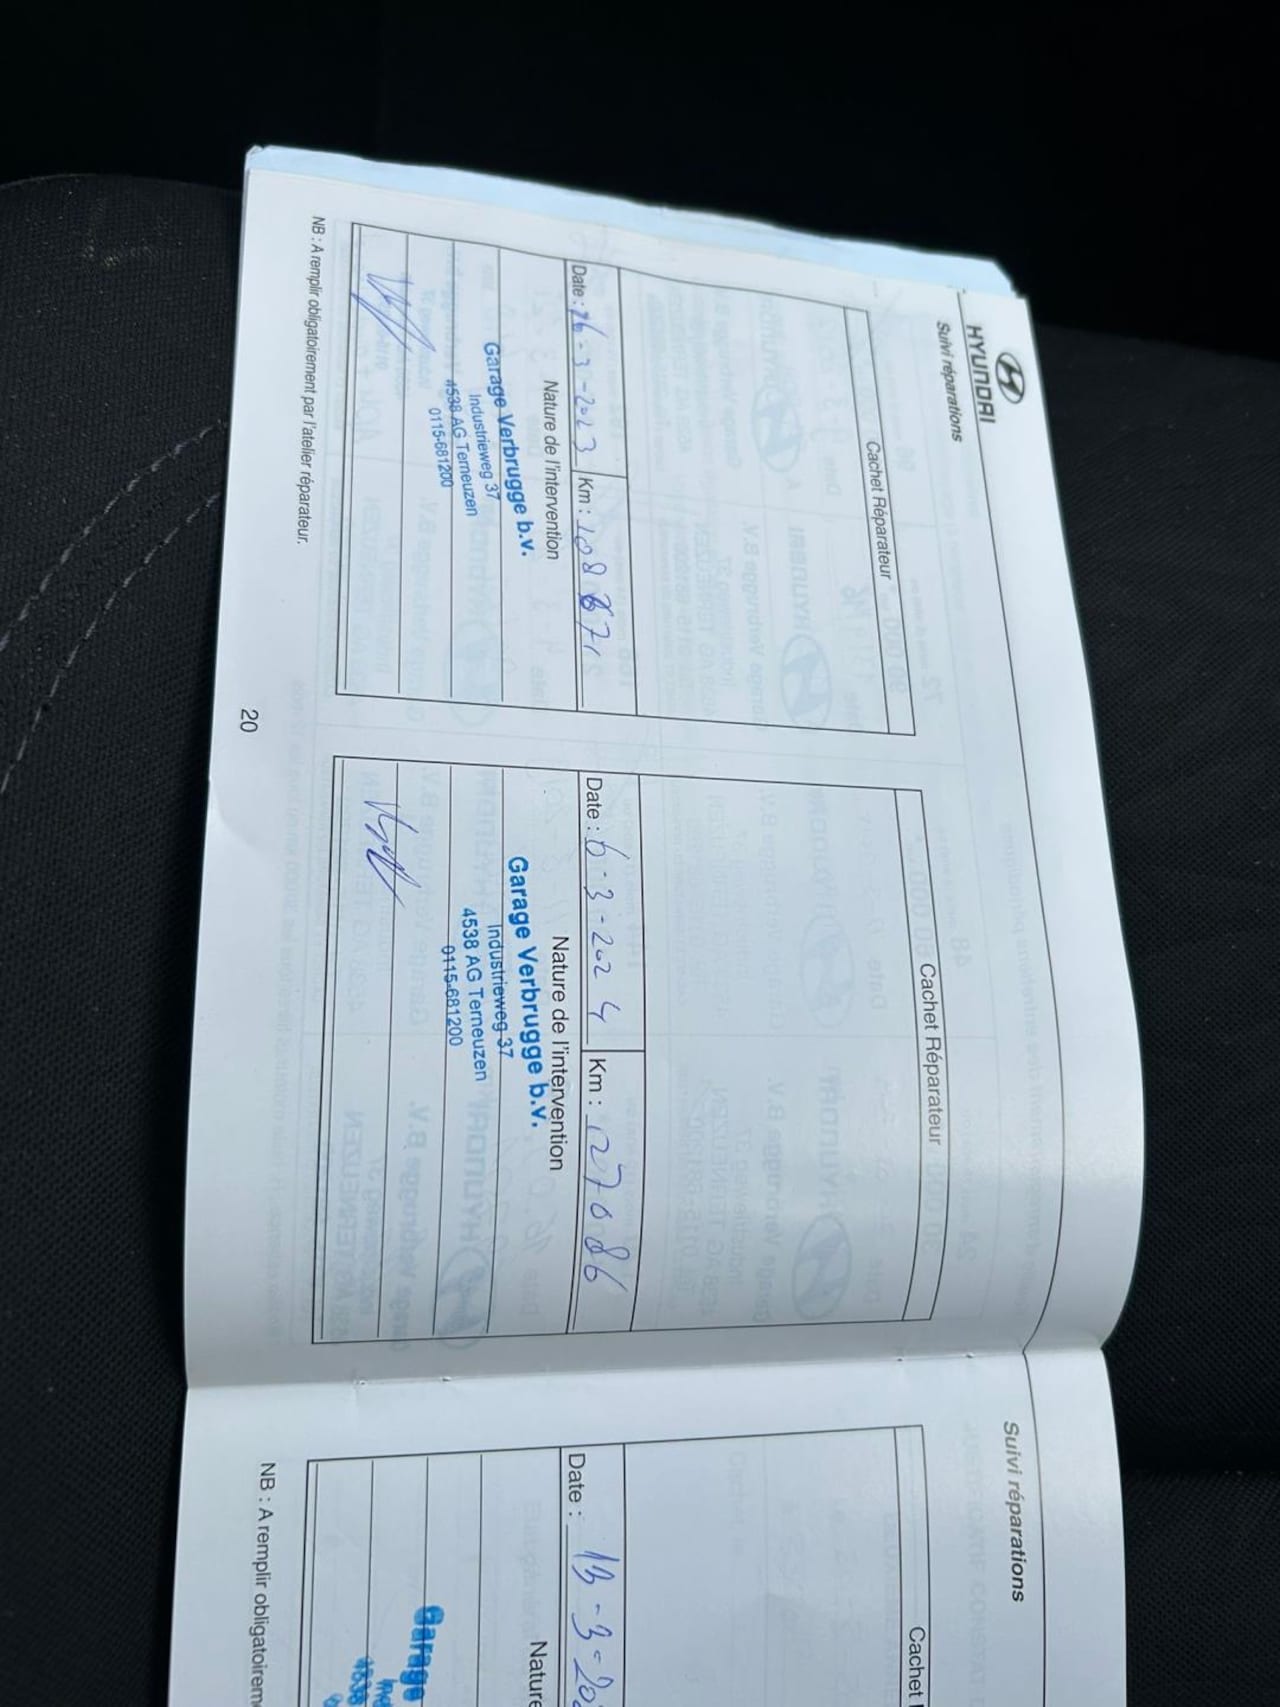 HYUNDAI
Suivi réparations
Cachet Réparateur
Date : 16-3-2023 Km : 108671
Nature de l'intervention
Garage Verbrugge b.v.
Industrieweg 37
4538 AG Terneuzen
0115-681200
NB : A remplir obligatoirement par l'atelier réparateur.
Cachet Réparateur
Date : 6-3-2024 Km : 127086
Nature de l'intervention
Garage Verbrugge b.v.
Industrieweg 37
4538 AG Terneuzen
0115-681200
20
Suivi réparations
Cachet
Date : 13-3-202
Nature
Garage
4538
NB : A remplir obligatoirem